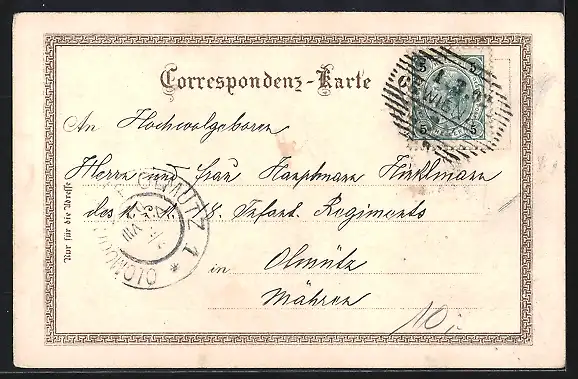 Correspondenz-Karte
An Hochwolgeboren
Herrn und Frau Hauptmann
des k. N. 8. Infant. Regiments
in Olmütz
Mähren
Nur für die Adresse
5 5
5 5
OLMÜTZ 1
OLOMOUC
10